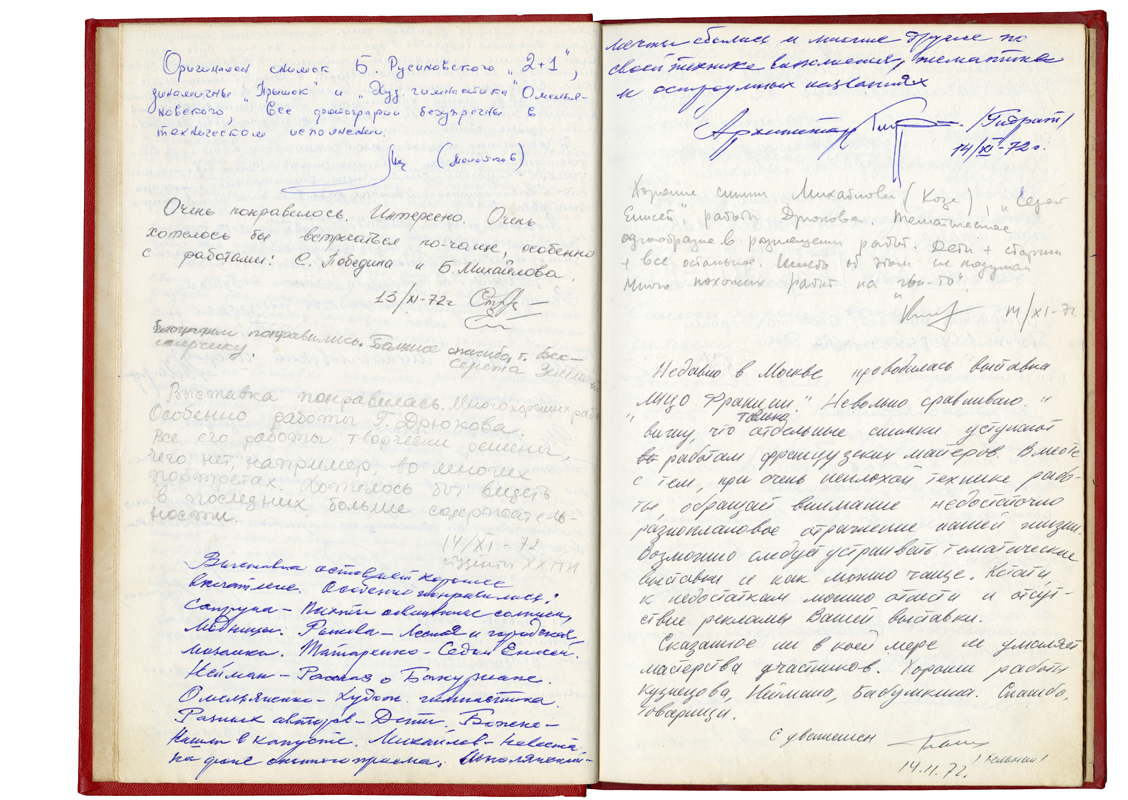 Оригинален снимок Б. Русиновского „2+1",
динамичны „Прыжок" и „Худ. гимнастика" Омелья-
новского, все фотографии безупречны в
техническом исполнении.
(Молотков)
Очень понравилось. Интересно. Очень
хотелось бы встречаться по-чаще, особенно
с работами: С. Победина и Б. Михайлова.
13/XI-72г
Фотографии понравились. Большое спасибо, т. Бек-
Серёжа
Выставка понравилась. Много хороших работ
Особенно работы Г. Дрюкова.
Все его работы творчески решены,
чего нет, например, во многих
портретах. Хотелось бы видеть
в последних больше содержатель-
ности.
14/XI-72
студенты ХХПИ
Выставка оставляет хорошее
впечатление. Особенно понравились:
Сапруна - Пихты освещённые солнцем,
Ледницы. Рыкова - Лесная и городская
мозаика. Татаренко - Седой Енисей.
Нейман - Рассказ о Бокуриане.
Омельяненко - Худож. гимнастика.
Разных авторов - Дети,
Нашли в капусте. Михайлов - Невеста,
на фоне
мечты сбылись и многие другие по
своей технике выполнения, тематике
и остроумных названиях
Архитектор
14/XI-72г.
Хорошие снимки Михайлова (Коже), „Седой
Енисей", работы Дрюкова. Тематическое
однообразие в размещении работ. Дети + старики
+ все остальное. об этом не подумал
Много похожих работ на
14/XI-72
Недавно в Москве проводилась выставка
„Лицо Франции." Невольно сравниваю.
вижу, что только отдельные снимки уступают
работам французских мастеров. Вместе
с тем, при очень неплохой технике рабо-
ты, обращает внимание недостаточно
разноплановое отражение нашей жизни.
Возможно следует устраивать тематические
выставки и как можно чаще. Кстати,
к недостаткам можно отнести и отсут-
ствие рекламы Вашей выставки.
Сказанное ни в коей мере не умоляет
мастерства участников. Хороши работы
Кузнецова, Неймана, Бабушкина. Спасибо,
товарищи.
С уважением
14.11.72.